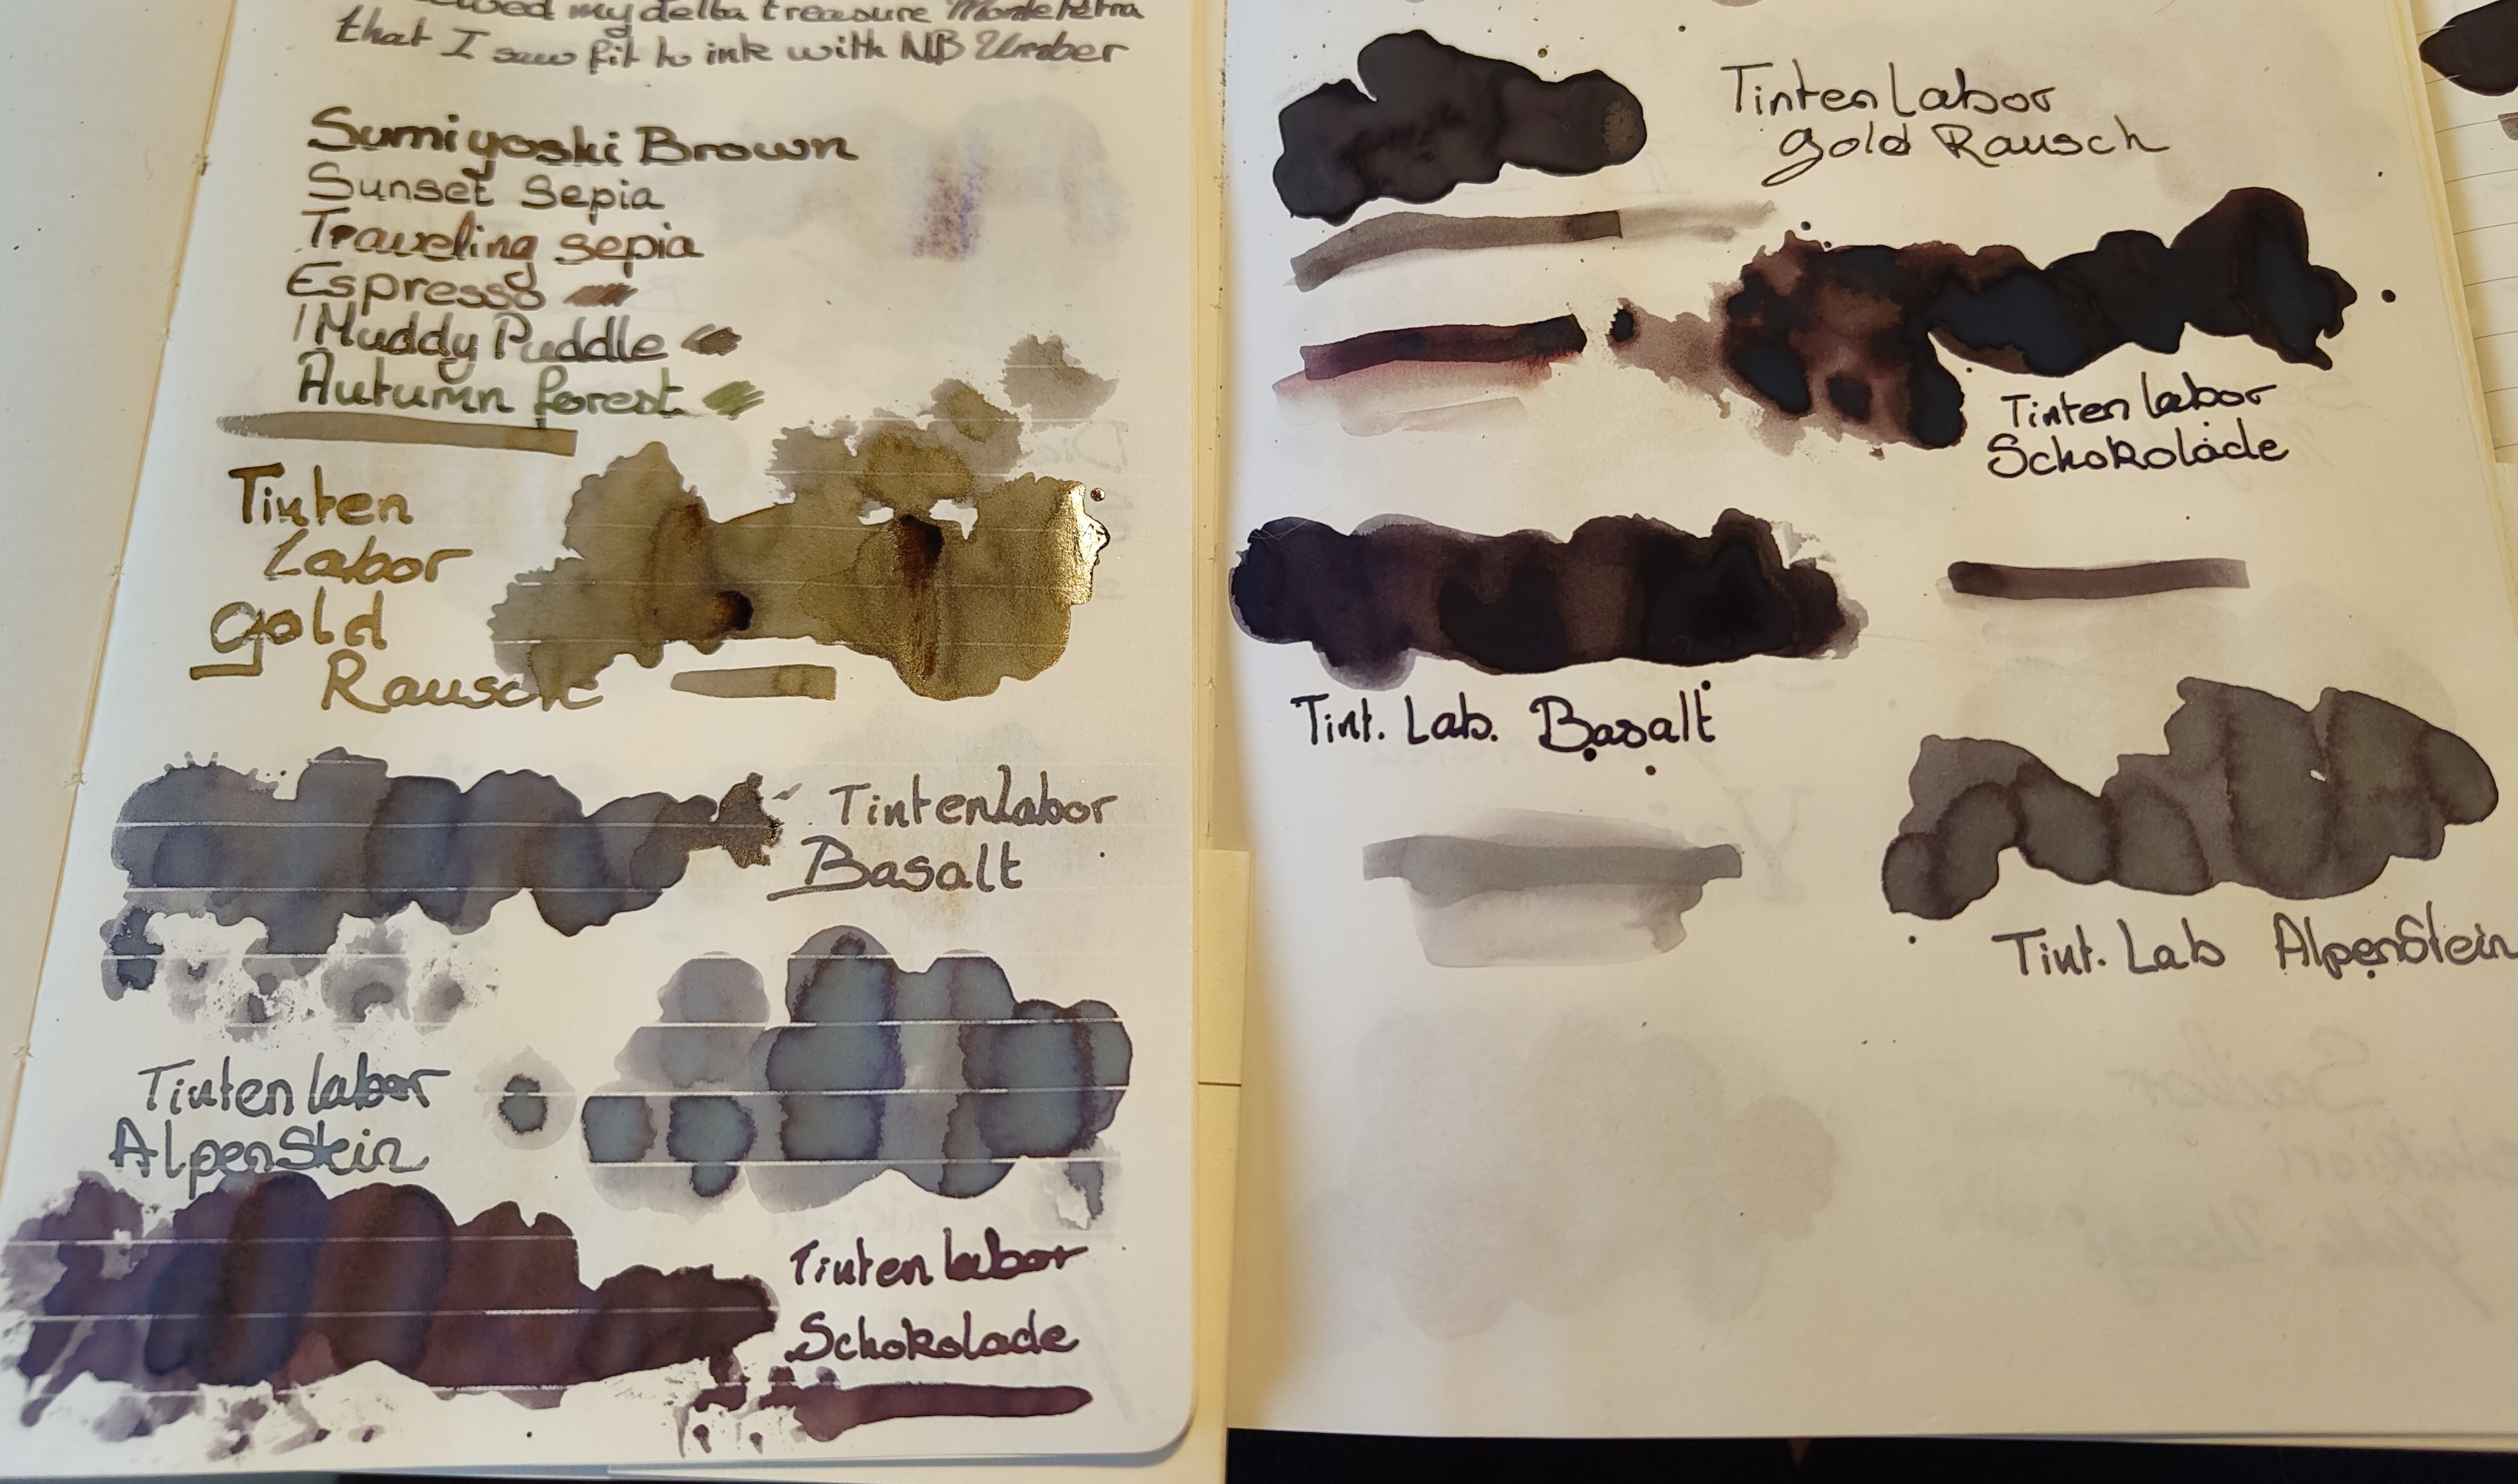 my delta treasure
that I saw fit to ink with NB Umber
Sumiyoski Brown
Sunset Sepia
Traveling sepia
Espresso
Muddy Puddle
Autumn forest
Tinten
Labor
gold
Rausch
Tintenlabor
Basalt
Tintenlabor
AlpenStein
Tintenlabor
Schokolade
TintenLabor
gold Rausch
Tintenlabor
Schokolade
Tint. Lab. Basalt
Tint. Lab AlpenStein